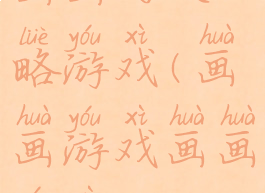 lüè yóu xì huà
略游戏(画
huà yóu xì huà huà
画游戏画画